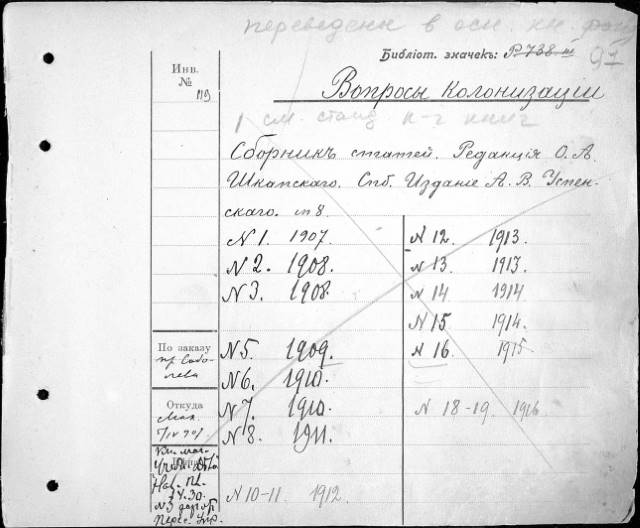 переведены в осн. кн. фонд
Библіот. значекъ: Р 738
Инв.
№
119
Вопросы Колонизаціи
см. станд. к-г книг
Сборникъ статей. Редакція О. А.
Шкапскаго. Спб. Изданіе А. В. Успен-
скаго. т 8.
N 1. 1907.
N 2. 1908.
N 3. 1908.
N 5. 1909.
N 6. 1910.
N 7. 1910.
N 8. 1911.
N 10-11 1912.
N 12. 1913.
N 13. 1913.
N 14 1914
N 15 1914.
N 16. 1915
N 18-19. 1916
По заказу
пр. Собо-
лева
Откуда
Маг.